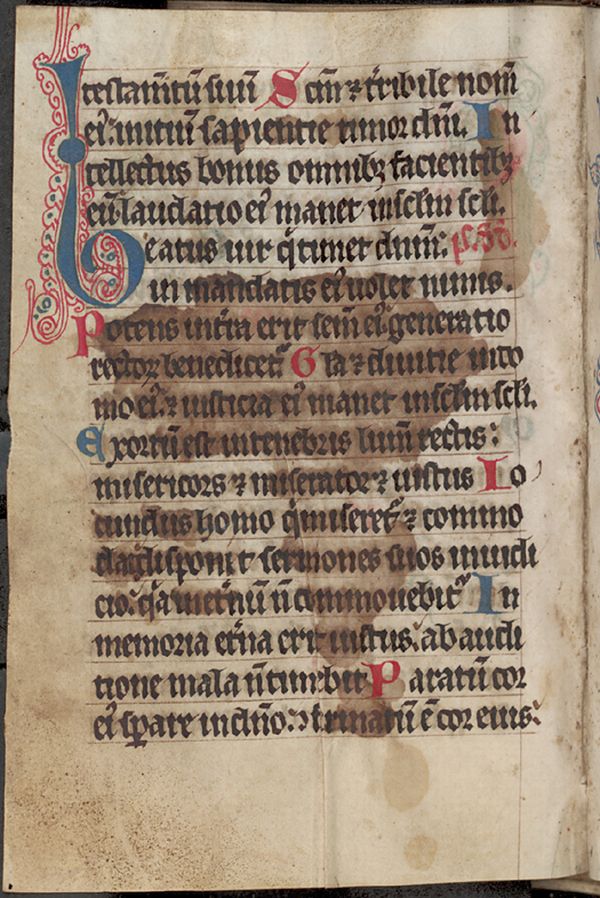 testam̄tū suū Scm̄ ⁊ t̄ribile nom̄
eiꝰ. initiū sapientie timor dn̄i. In
tellectus bonus omnibꝫ facientibꝫ
eū laudatio eiꝰ manet in sclm̄ scli.
Beatus uir q̇ timet dnm̄: ps.
in mandatis eiꝰ uolet nimis.
Potens in tr̄a erit sem̄ eiꝰ generatio
rectoꝝ benedicet᷑ Gl̄a ⁊ diuitie in do
mo eiꝰ. ⁊ iusticia eiꝰ manet in sclm̄ scli.
Exortū est in tenebris lum̄ rectis:
misericors ⁊ miserator ⁊ iustus Io
cundus homo q̇ miseret᷑ ⁊ commo
dat disponit sermones suos in iudi
cio. q̇a in et̄nū n̄ commouebit᷑ In
memoria et̄na erit iustus. ab audi
tione mala n̄ timebit Paratū cor
eiꝰ sꝑare in dn̄o. ↄfirmatū ē cor eius.